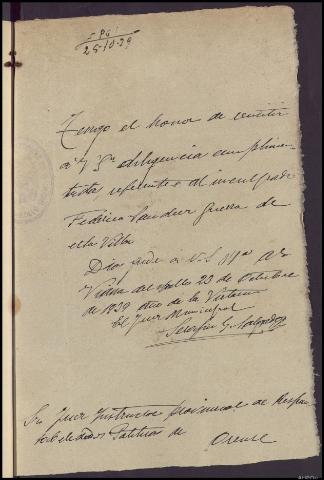 25-10-39
Tengo el honor de remitir
a V. S. diligencia cumplimen-
tada referente al inculpado
Federico Sanchez Guerra de
esta Villa
Dios gude a V.S. Ms. as
Viana del Bollo 23 de Octubre
de 1939 Año de la Victoria
El Juez Municipal
Sr. Juez Instructor provincial de Respon-
sabilidades Politicas de Orense